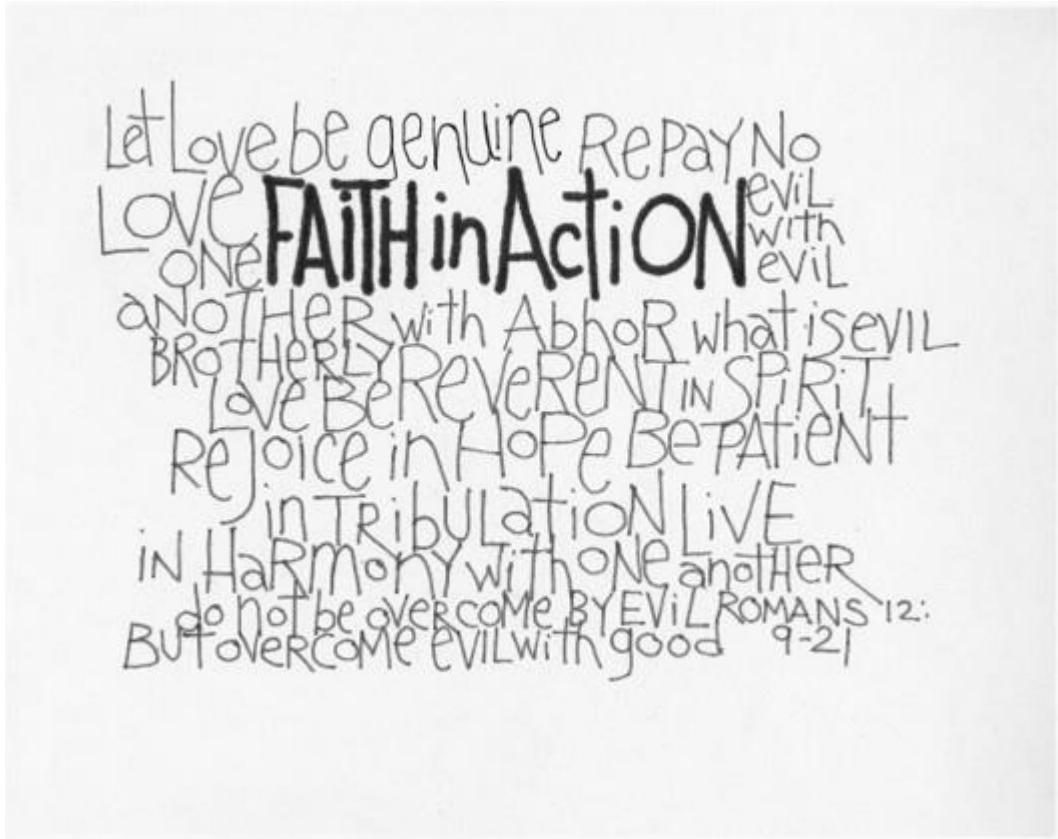 Let Love be genuine RePAY No
LOVE FAiTH in ActiON eviL
with
ONe eviL
aNOTHeR with AbhoR what is eVIL
BROTHeRLY
LoVe Be ReVeReNT iN SPiRiT
Rejoice in HoPe Be PAtieNt
in TRibULatioN LiVE
iN HaRmoNy with oNe anotHeR
do not be oveRcoMe BY EViL ROMANS 12:
BUt oveRcoMe eViL with good 9-21